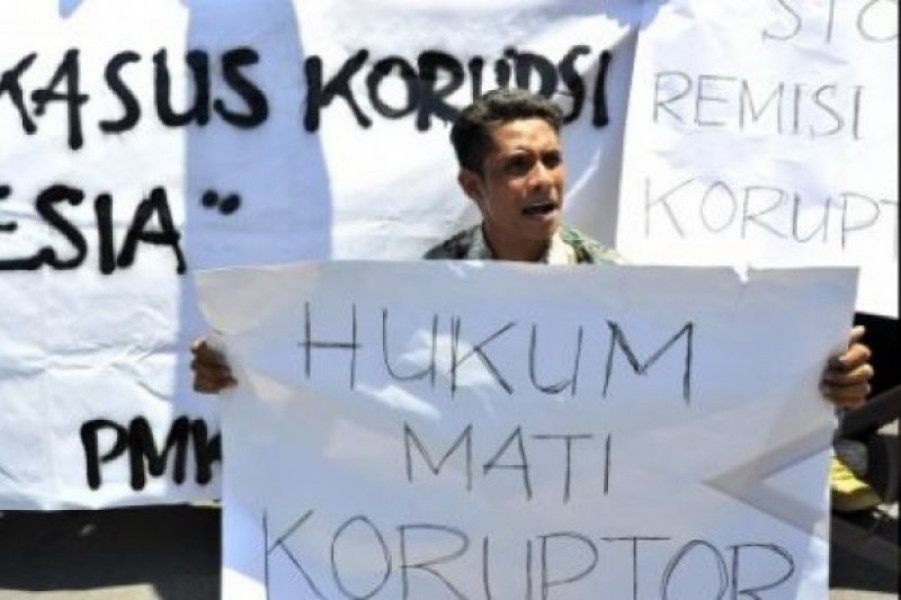 KASUS KORUPSI
ESIA"
PMK
STO
REMISI
KORUPT
HUKUM
MATI
KORUPTOR